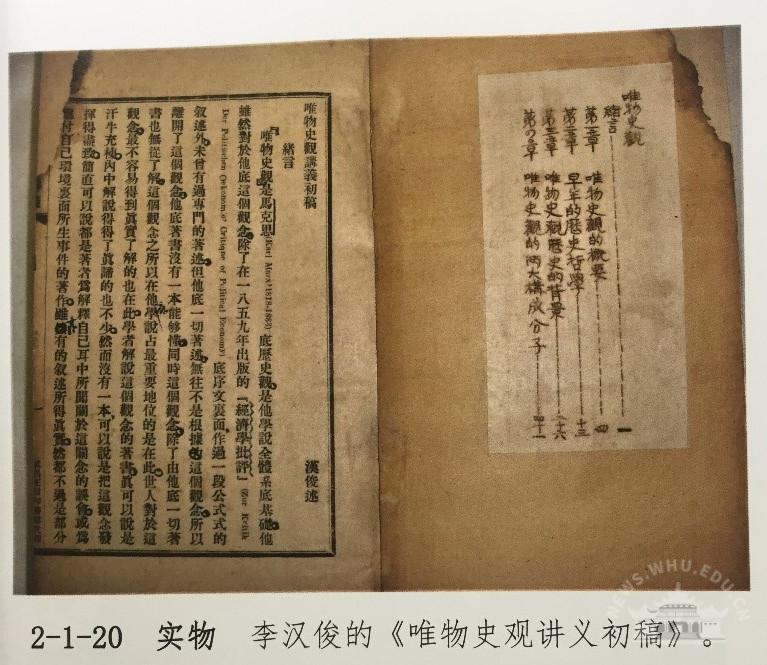 唯物史觀
緒言 一
第一章 唯物史觀的概要 四
第二章 早年的歷史哲學 十三
第三章 唯物史觀歷史的背景 二十六
第四章 唯物史觀的两大構成分子 四十一
唯物史觀講義初稿 漢俊述
緒言
唯物史觀是馬克思(Karl Marx 1818-1883)底歷史觀,是他學說全體系底基礎,他
雖然對於他底這個觀念,除了在一八五九年出版的『經濟學批評』(Zur Kritik
Der Politischen Oekonomie Critique of Political Economy)底序文裏面,作過一段公式式的
敘述外,未曾有過專門的著述,但他底一切著述,無往不是根據的這個觀念,所以
離開了這個觀念,他底著書沒有一本能够懂,同時這個觀念,除了由他底一切著
書也無從了解,這個觀念之所以在他學說占最重要地位的是在此,世人對於這
觀念,最不容易得到眞實了解的也在此,學者解說這個觀念的著書,眞可以說是
汗牛充棟,內中解說得得了眞諦的也不少,然而沒有一本,可以說是把這觀念發
揮得盡致,簡直可以說都是著者爲解釋自己耳中所聞關於這關念的誤會,或爲
應付自己環境裏面所生事件的著作,雖有的敘述所得眞實,然都不過是部分
NEWS.WHU.EDU.CN
2-1-20 实物 李汉俊的《唯物史观讲义初稿》。